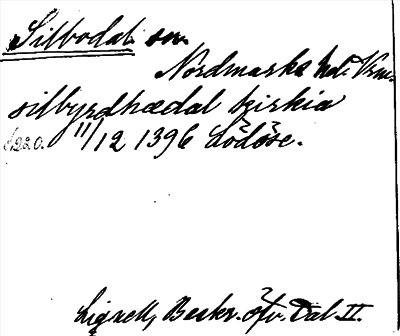 Silbodal sn.
Nordmarks hd. Vrml.
silbyrdhædal kirkia
11/12 1396 Lödöse.
Lignell, Beskr. öfv. Dal II.